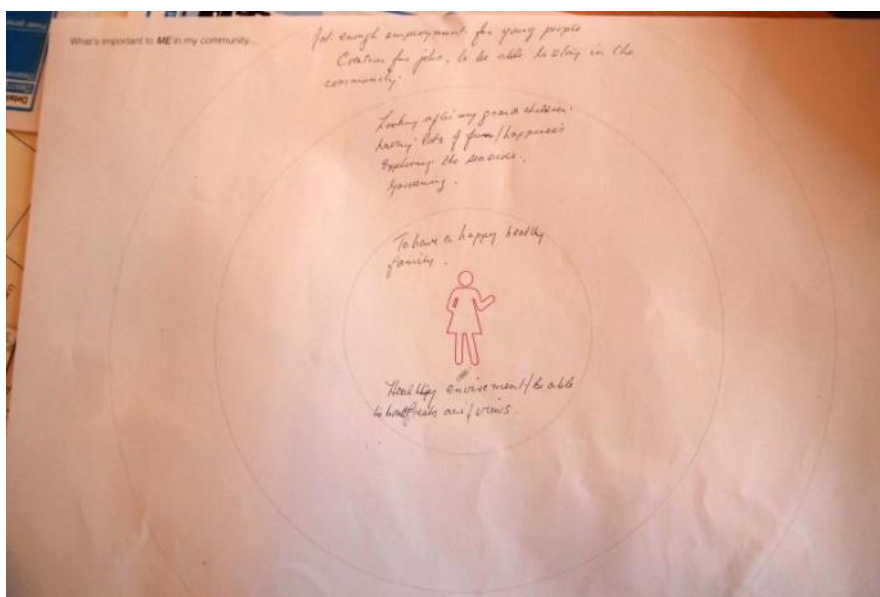 What's important to ME in my community...
Not enough employment for young people
for jobs, to be able to stay in the
community.
Looking after my grand children.
having lots of fun/happiness
Exploring the seaside.
Gardening.
To have a happy healthy
family.
Healthy enviroment/be able
to have fresh air/views.